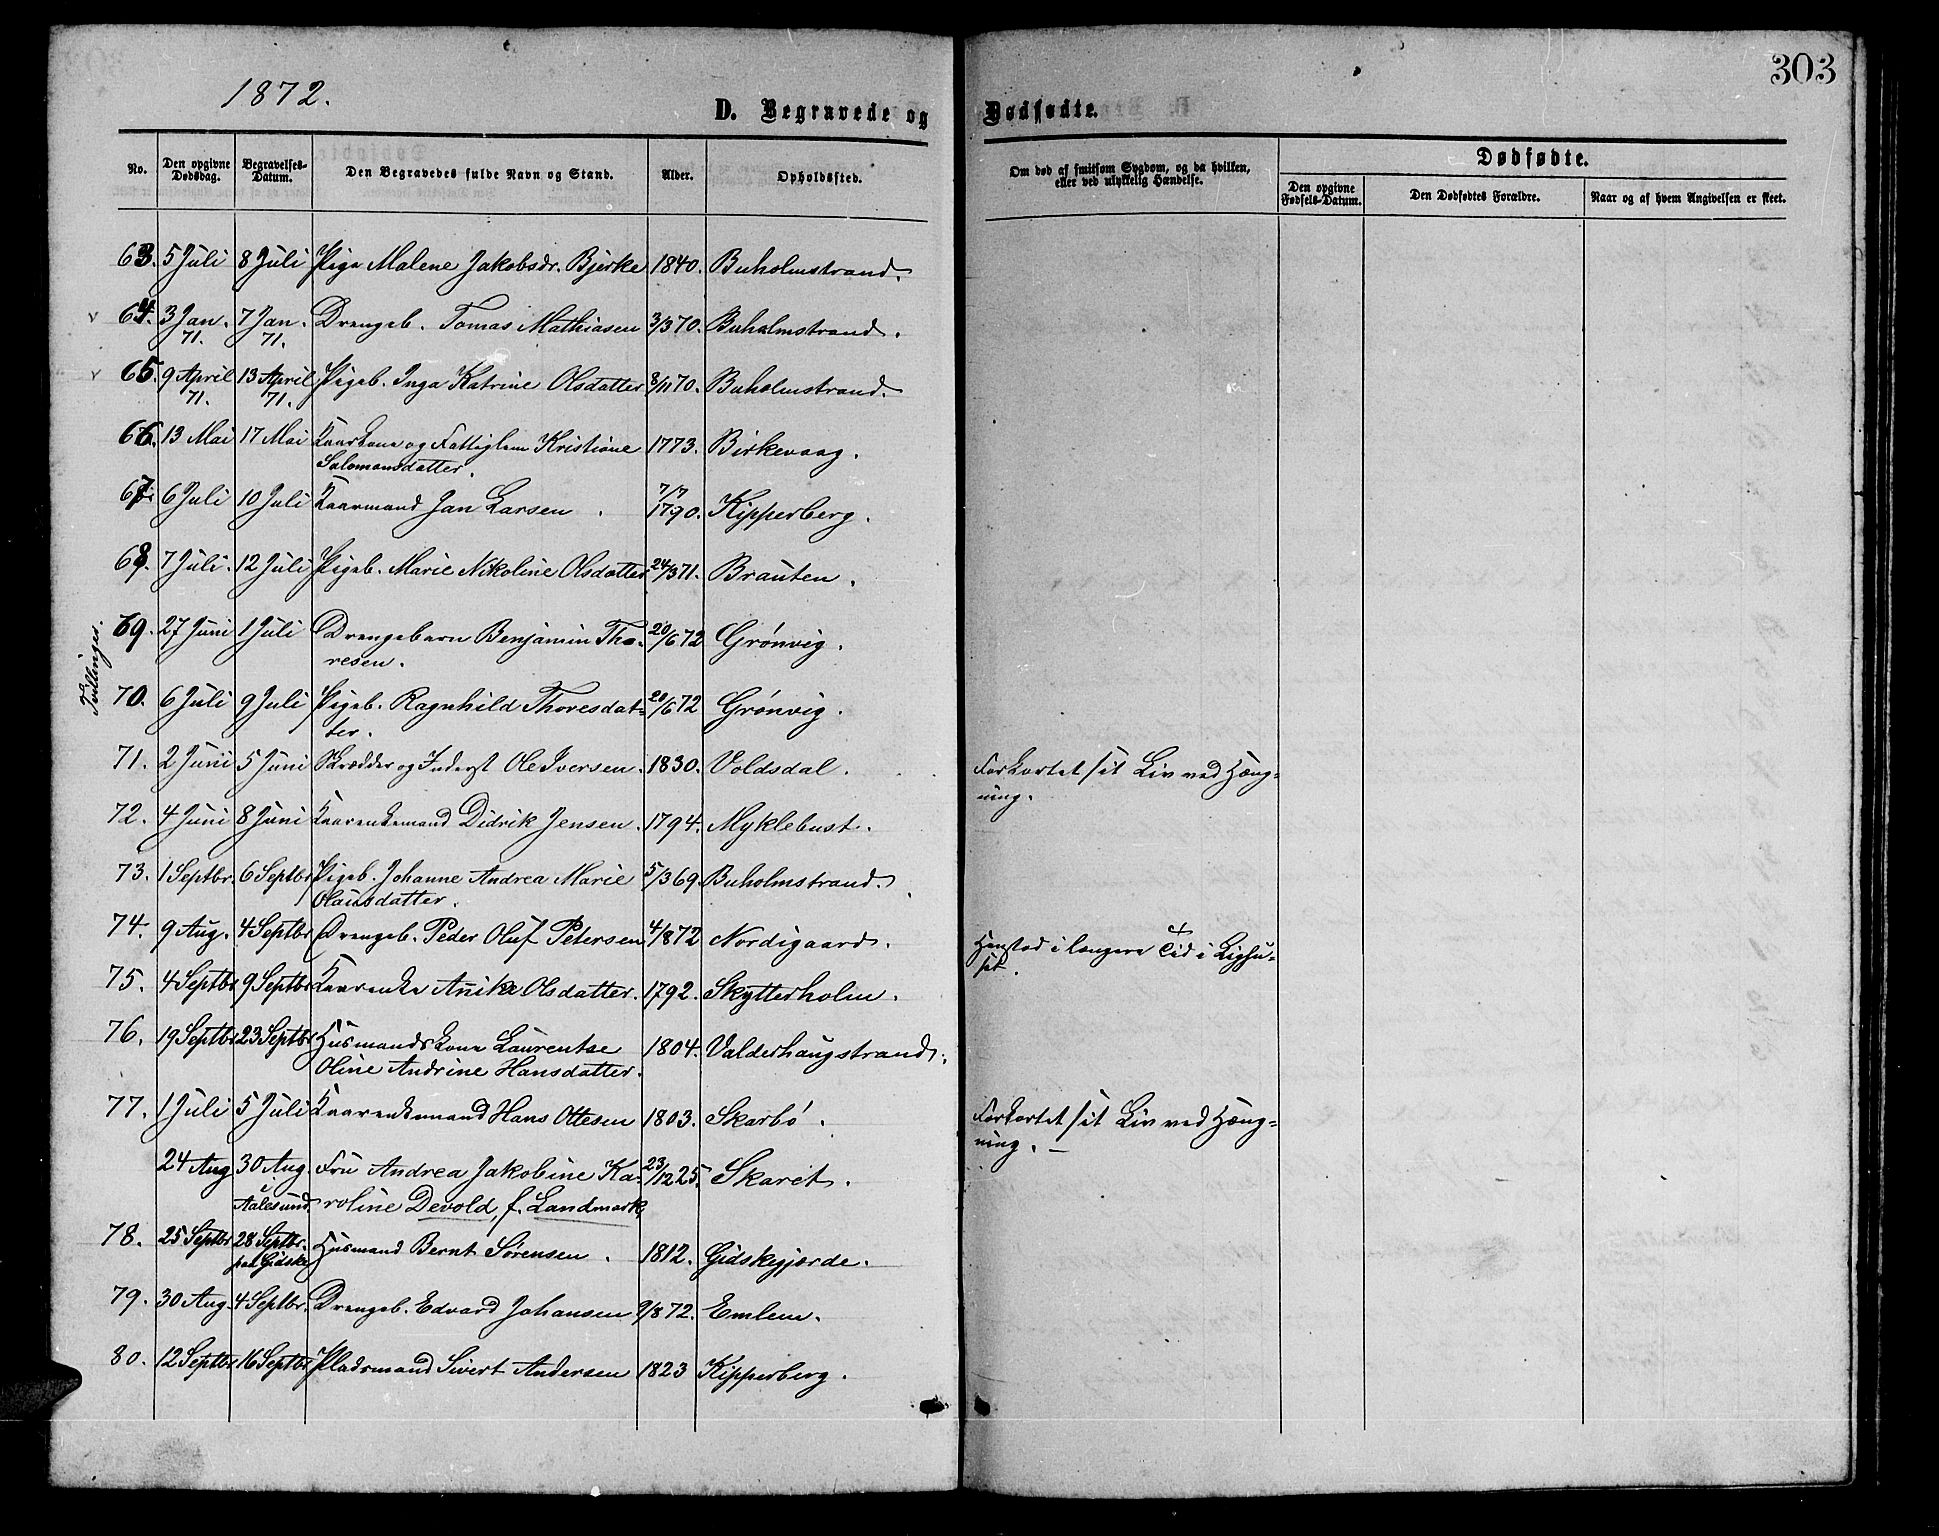 303
1872.
D. Begravede og Dødfødte.
No. Den opgivne Dødsdag. Begravelses-Datum. Den Begravedes fulde Navn og Stand. Alder. Opholdssted. Om død af smitsom Sygdom, og da hvilken, eller ved ulykkelig Hændelse. Dødfødte.
Den opgivne Fødsels-Datum. Den Dødfødtes Forældre. Naar og af hvem Angivelsen er skeet.
63. 5 Juli 8 Juli Pige Malene Jakobsdr. Bjerke 1840. Buholmstrand.
v 64. 3 Jan. 7 Jan. Drengeb. Tomas Mathiasen 3/3 70. Buholmstrand.
71. 71.
v 65. 9 April 13 April Pigeb. Inga Katrine Olsdatter 8/11 70. Buholmstrand.
71. 71.
66. 13 Mai 17 Mai Kaarkone og Fattiglem Kristiane 1773. Birkevaag.
Salomonsdatter.
67. 6 Juli 10 Juli Kaarmand Jan Larsen . 7/7 1790. Kipperberg.
68. 7 Juli. 12 Juli Pigeb. Marie Nikoline Olsdatter 24/3 71. Brauten.
Tvillinger.
69. 27 Juni 1 Juli Drengebarn Benjamin Tho- 20/6 72 Grønvig.
resen.
70. 6 Juli 9 Juli Pigeb. Ragnhild Thoresdat- 20/6 72 Grønvig.
ter.
71. 2 Juni 5 Juni Skrædder og Inderst Ole Iversen. 1830. Voldsdal. Forkortet sit Liv ved Hæng-
ning.
72. 4 Juni 8 Juni Kaarenkemand Didrik Jensen. 1794. Myklebust.
73. 1 Septbr. 6 Septbr Pigeb. Johanne Andrea Marie 5/3 69. Buholmstrand.
Olausdatter.
74. 9 Aug. 4 Septbr Drengeb. Peder Oluf Petersen 4/8 72 Nordigaard. Henstod i længere Tid i Lighu-
set.
75. 4 Septbr 9 Septbr Kaarenke Anika Olsdatter. 1792. Skytterholm.
76. 19 Septbr 23 Septbr Husmandskone Laurentse 1804. Valderhaugstrand.
Oline Andrine Hansdatter.
77. 1 Juli 5 Juli Kaarenkemand Hans Ottesen 1803. Skarbø. Forkortet sit Liv ved Hæng-
ning. –
24 Aug 30 Aug. Fru Andrea Jakobine Ka- 23/12 25. Skaret.
i Aalesund. roline Devold, f. Landmark,
78. 25 Septbr 28 Septbr. Husmand Bernt Sørensen . 1812. Gidskegjærde.
paa Gidske
79. 30 Aug. 4 Septbr. Drengeb. Edvard Johansen 9/8 72. Emlem.
80. 12 Septbr 16 Septbr Pladsmand Sivert Andersen 1823 Kipperberg.